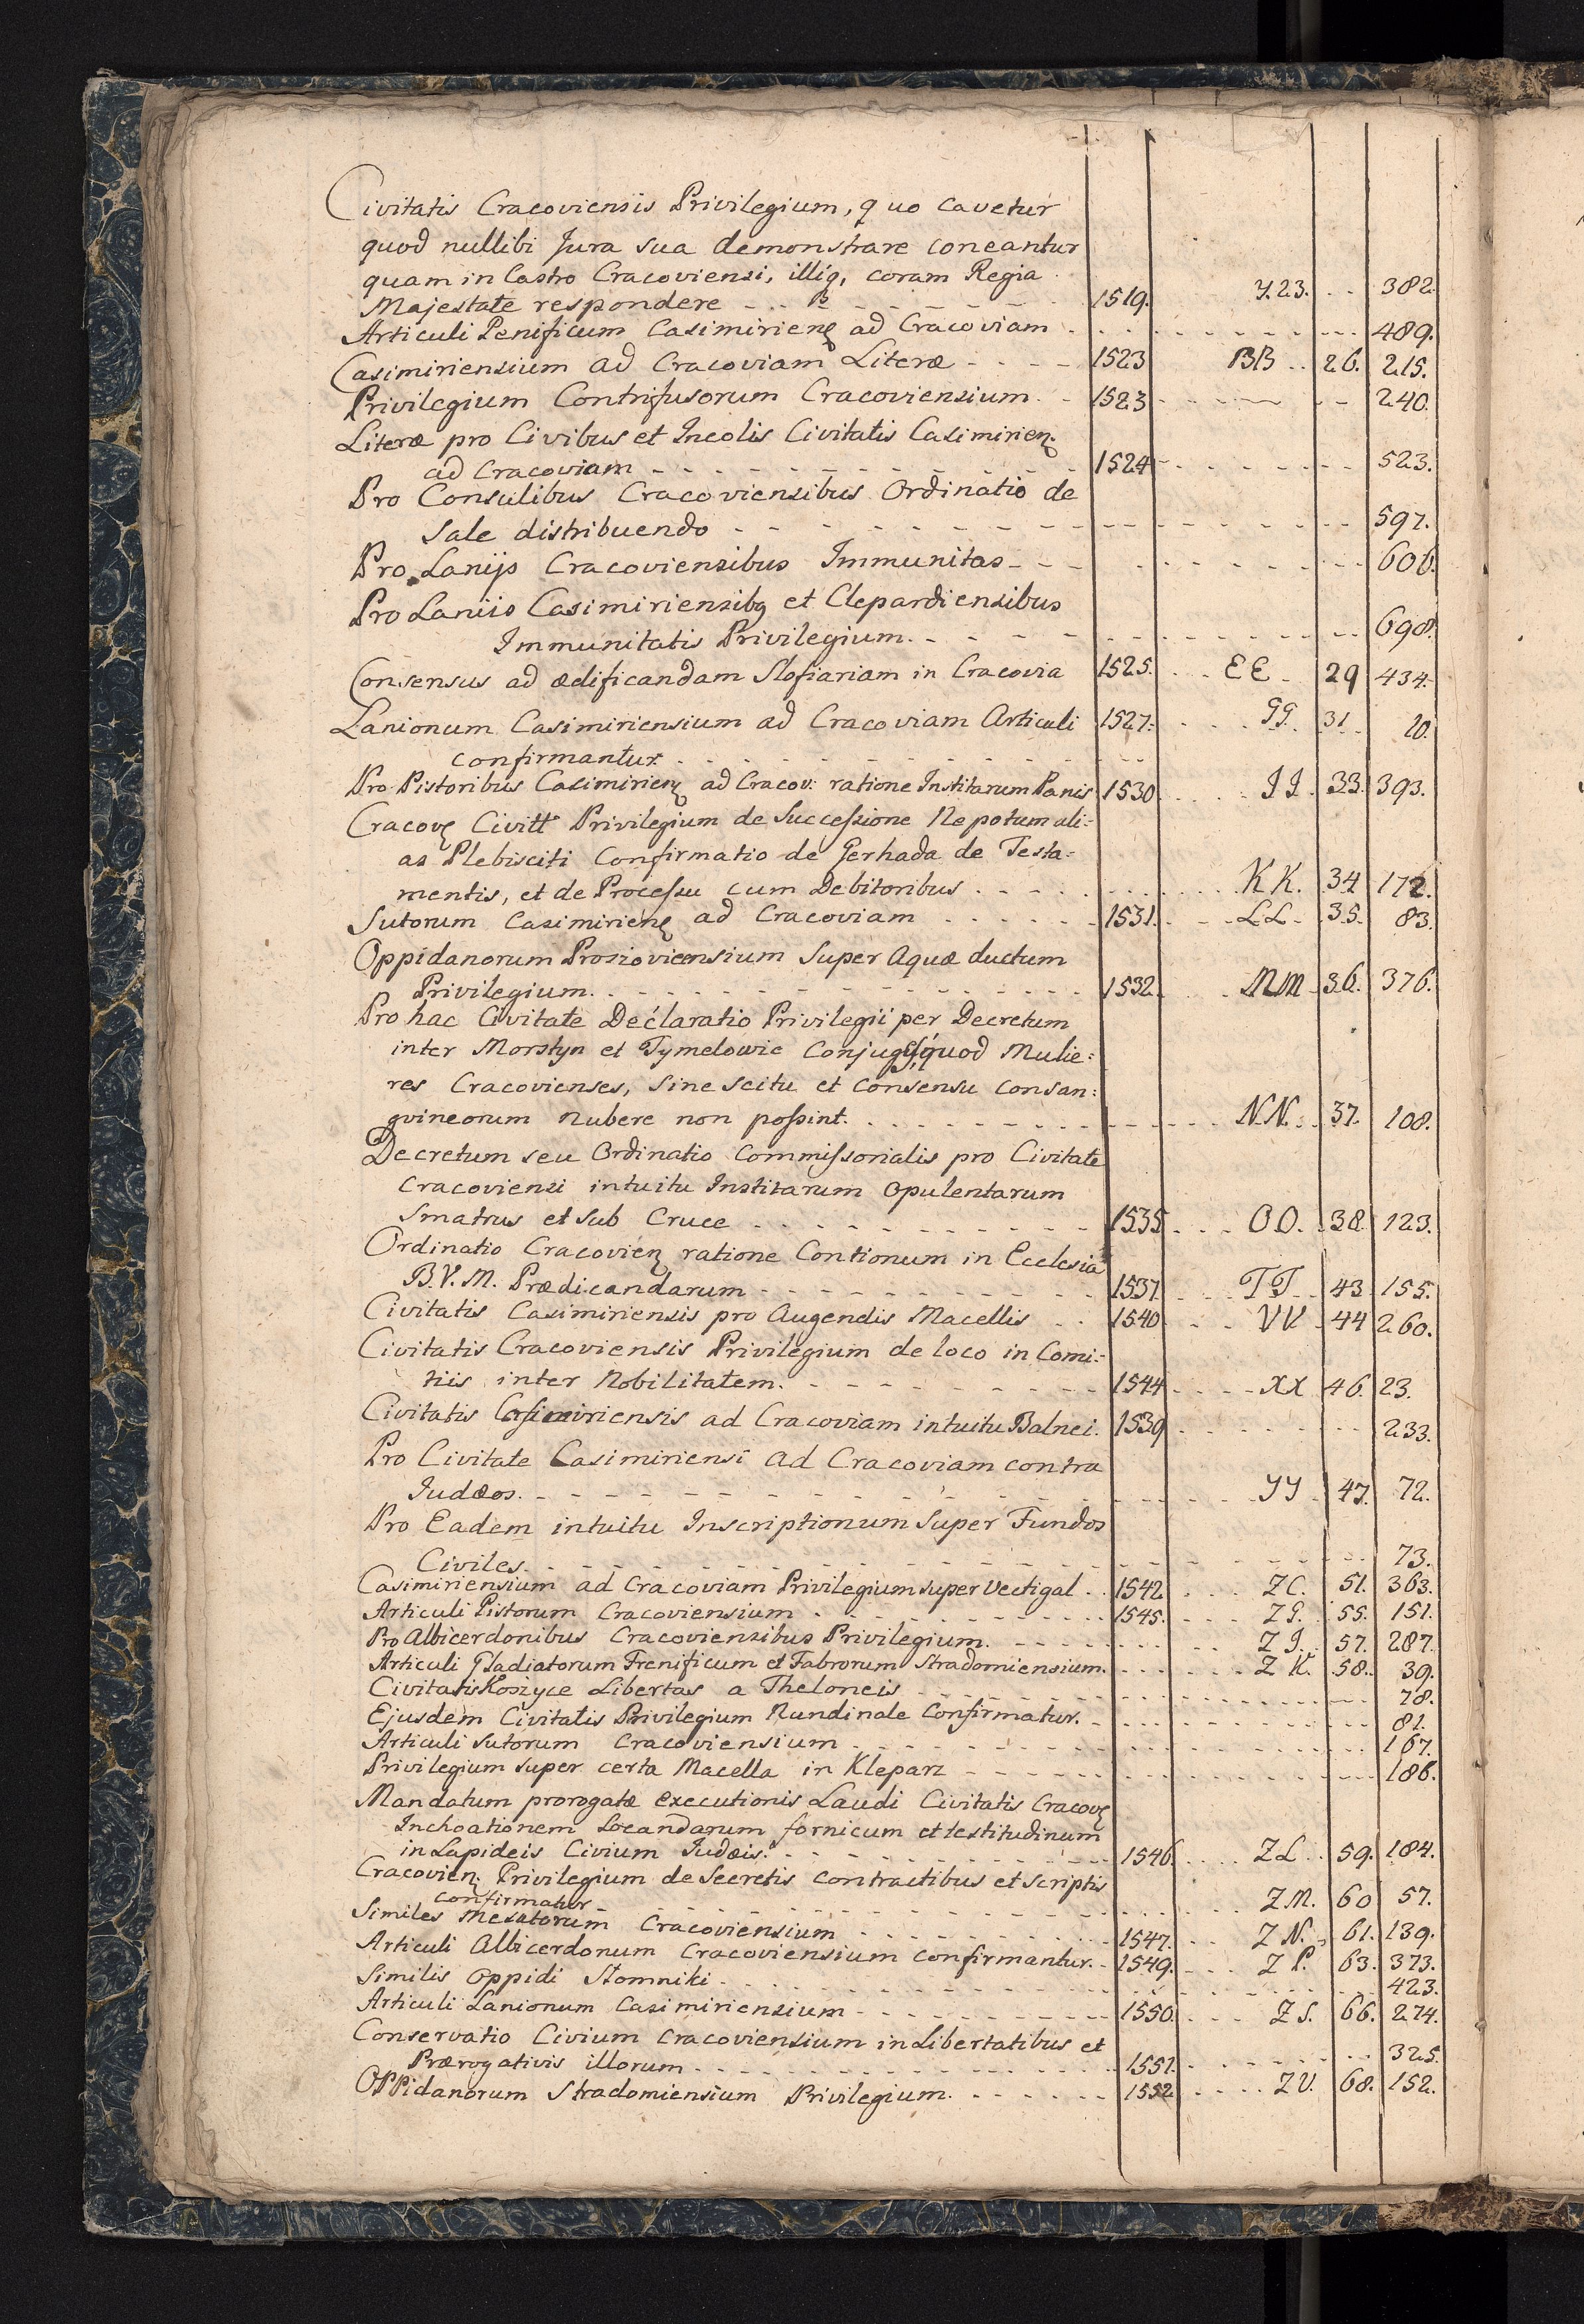 Civitatis Cracoviensis Privilegium, quo cavetur
quod nullibi Jura sua demonstrare coneantur
quam in Castro Cracoviensi, illiq, coram Regia
Majestate respondere - - - 1519. Y. 23. - - 382.
Articuli Penificum Casimirienę ad Cracoviam - - - 489.
Casimiriensium ad Cracoviam Literæ - - - - 1523 BB - - 26. 215.
Privilegium Contrifusorum Cracoviensium. - 1523 - - - 240.
Literæ pro Civibus et Incolis Civitatis Casimirien.
ad Cracoviam - - - 1524 - - - 523.
Pro Consulibus Cracoviensibus Ordinatio de
Sale distribuendo - - - 597.
Pro Lanijs Cracoviensibus Immunitas - - - 606.
Pro Laniis Casimiriensibq et Clepardiensibus
Immunitatis Privilegium. - - - 698.
Consensus ad ædificandam Slofiariam in Cracovia 1525. - - EE - 29 434.
Lanionum Casimiriensium ad Cracoviam Articuli 1527. - - GG. 31. 20.
confirmantur. - - -
Pro Pistoribus Casimirienę ad Cracov: ratione Institarum Panis 1530 - - - II. 33. 393.
Cracovę Civitt Privilegium de Successione Nepotum ali=
as Plebisciti Confirmatio de Gerhada de Testa=
mentis, et de Processu cum Debitoribus - - - KK. 34 172.
Sutorum Casimirienę ad Cracoviam - - - 1531. - - LL - 35. 83.
Oppidanorum Prosioviensium Super Aquæ ductum
Privilegium. - - - 1532. - - MM 36. 376.
Pro hac Civitate Declaratio Privilegii per Decretum
inter Morstyn et Tymelowic Conjuges, quod Mulie=
res Cracovienses, Sine scitu et Consensu consan:
gvineorum nubere non possint. - - - NN. 37. 108.
Decretum seu Ordinatio Commissorialis pro Civitate
Cracoviensi intuitu Institarum opulentarum
Smatrus et Sub Cruce - - - 1535 - - - OO. 38 123.
Ordinatio Cracovienę ratione Contionum in Ecclesia
B.V.M. Prædicandarum - - - 1537. - - TT - 43 155.
Civitatis Casimiriensis pro Augendis Macellis - - 1540 - - VV - 44 260.
Civitatis Cracoviensis Privilegium de loco in Comi=
tiis inter Nobilitatem. - - - 1544 - - - XX 46. 23.
Civitatis Casimiriensis ad Cracoviam intuitu Balnei. 1539 - - - 233.
Pro Civitate Casimiriensi ad Cracoviam contra
Judæos. - - - YY 47. 72.
Pro Eadem intuitu Inscriptionum Super Fundos
Civiles. - - - 73.
Casimiriensium ad Cracoviam Privilegium super Vectigal - - 1542 - - - ZC. 51. 363.
Articuli Pistorum Cracoviensium - - - 1545. - - - ZG. 55. 151.
Pro Albicerdonibus Cracoviensibus Privilegium. - - - ZI. 57. 287.
Articuli Gladiatorum Frenificum et Fabrorum Stradomiensium. - - - ZK. 58. 39.
Civitatis Koszyce Libertas a Theloneis - - - 78.
Ejusdem Civitatis Privilegium Nundinale Confirmatur. - - - 81.
Articuli Sutorum Cracoviensium - - - 167.
Privilegium super certa Macella in Kleparz - - - 186.
Mandatum prorogatæ executionis Laudi Civitatis Cracovę
Inchoationem Locandarum fornicum et testitudinum
in Lapideis Civium Judæis. - - - 1546. - - - ZL. 59. 184.
Cracovien. Privilegium de Secretis contractibus et Scriptis
Confirmatur - - - ZM. 60 57.
Similes Mesatorum Cracoviensium - - - 1547. - - ZN. 61. 139.
Articuli Albicerdonum Cracoviensium confirmantur. - 1549. - - - ZP. 63. 373.
Similis Oppidi Stomniki - - - 423.
Articuli Lanionum Casimiriensium - - - 1550. - - - ZS. 66. 274.
Conservatio Civium Cracoviensium in Libertatibus et
Prærogativis illorum - - - 1551. - - - 325.
Oppidanorum Stradomiensium Privilegium. - - - 1552 - - - ZV. 68. 152.